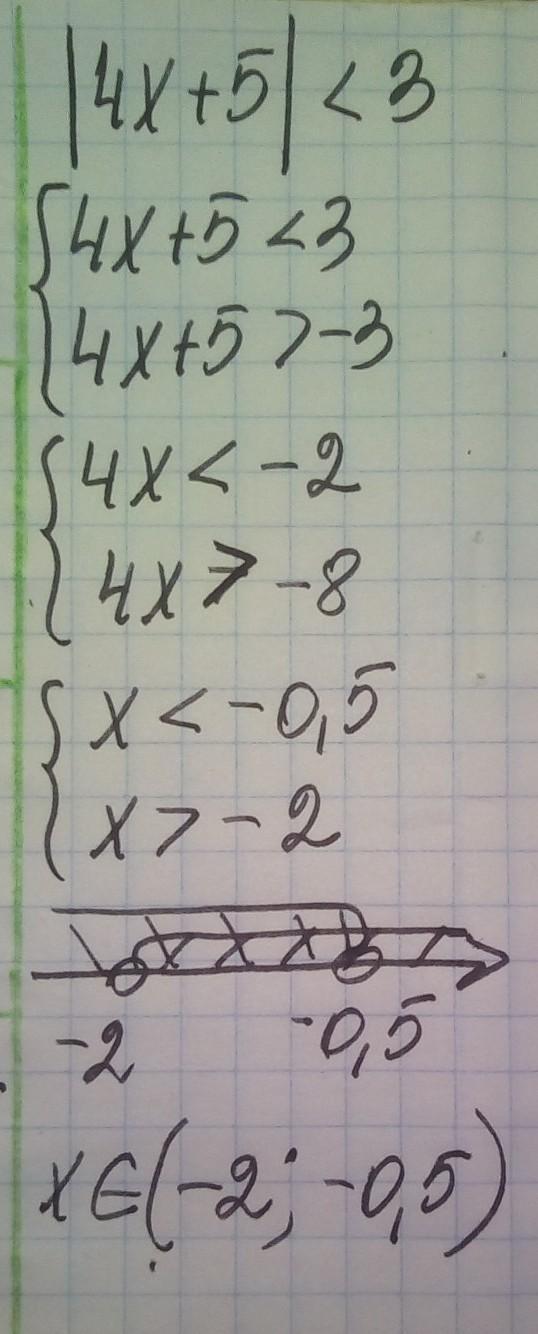 |4x+5| < 3
{4x+5 < 3
4x+5 > -3
{4x < -2
4x > -8
{x < -0,5
x > -2
-2 -0,5
x∈(-2; -0,5)